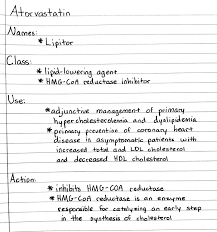 Atorvastatin
Names:
* Lipitor
Class:
* lipid-lowering agent
* HMG-CoA reductase inhibitor
Use:
* adjunctive management of primary
hypercholesterolemia and dyslipidemia
* primary prevention of coronary heart
disease in asymptomatic patients with
increased total and LDL cholesterol
and decreased HDL cholesterol
Action:
* inhibits HMG-COA reductase
* HMG-CoA reductase is an enzyme
responsible for catalyzing an early step
in the synthesis of cholesterol